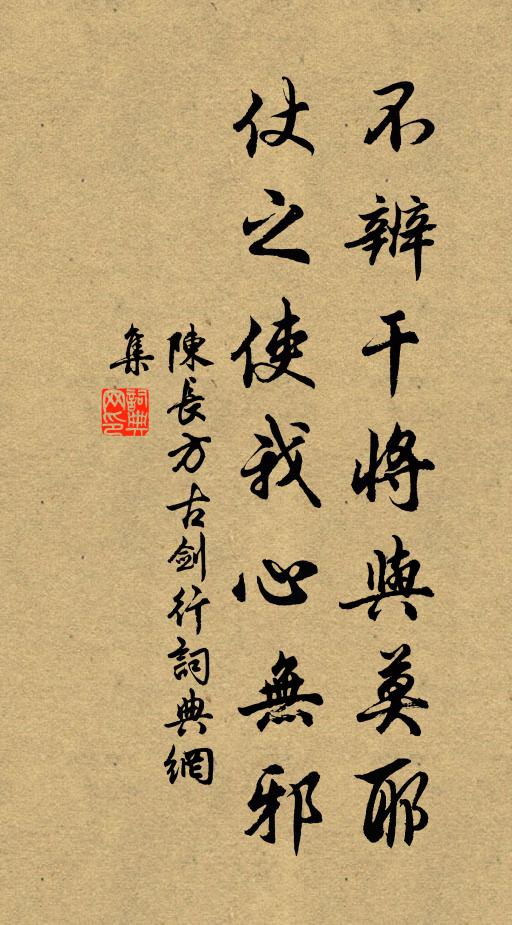 不辨干將與莫耶
仗之使我心無邪
陳長方古劍行詞典網
集
詞典網印